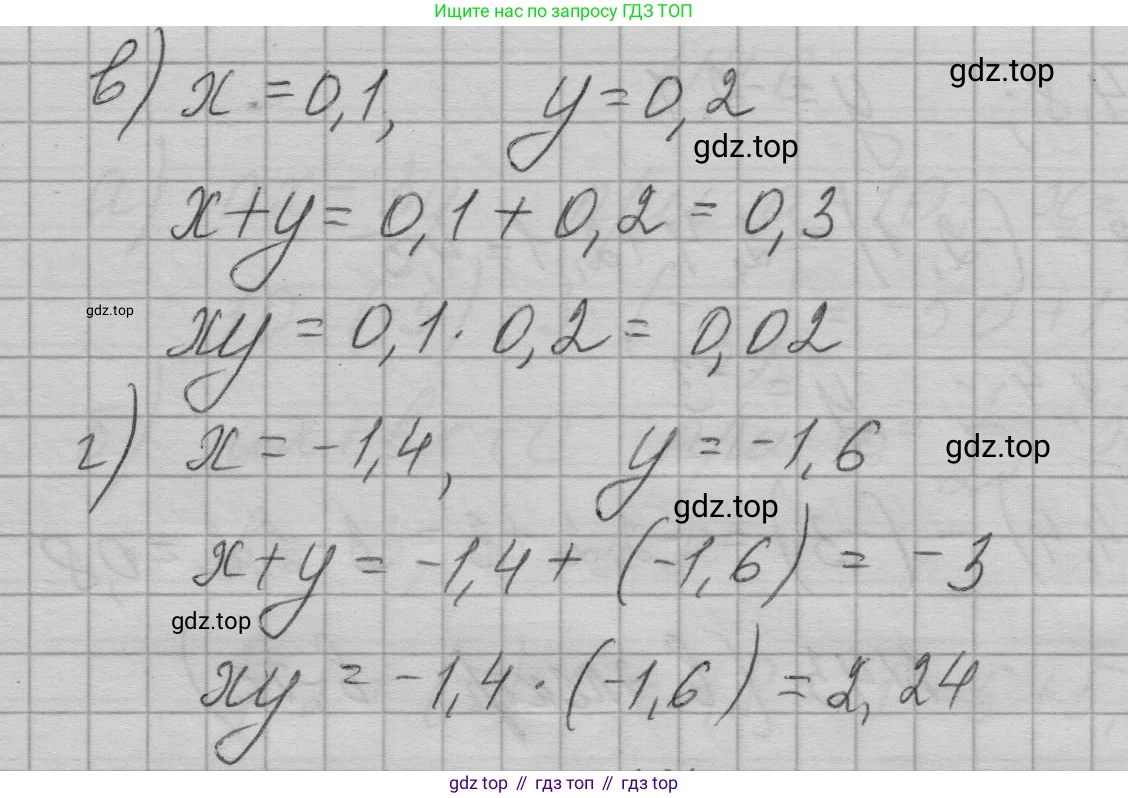 Ищите нас по запросу ГДЗ ТОП
в) x = 0,1, y = 0,2
gdz.top
gdz.top
x+y = 0,1 + 0,2 = 0,3
gdz.top
xy = 0,1 · 0,2 = 0,02
г) x = -1,4, y = -1,6
gdz.top
gdz.top
x+y = -1,4 + (-1,6) = -3
gdz.top
xy = -1,4 · (-1,6) = 2,24
gdz top // гдз топ // гдз top